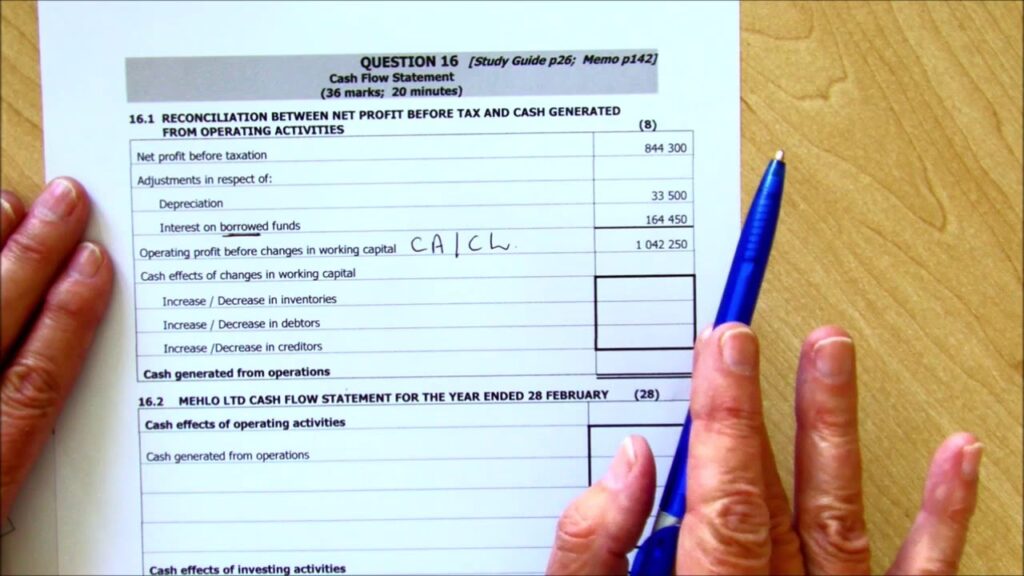 QUESTION 16 [Study Guide p26; Memo p142]
Cash Flow Statement
(36 marks; 20 minutes)
16.1 RECONCILIATION BETWEEN NET PROFIT BEFORE TAX AND CASH GENERATED
FROM OPERATING ACTIVITIES (8)
Net profit before taxation 844 300
Adjustments in respect of:
Depreciation 33 500
Interest on borrowed funds 164 450
Operating profit before changes in working capital CA/CL. 1 042 250
Cash effects of changes in working capital
Increase / Decrease in inventories
Increase / Decrease in debtors
Increase /Decrease in creditors
Cash generated from operations
16.2 MEHLO LTD CASH FLOW STATEMENT FOR THE YEAR ENDED 28 FEBRUARY (28)
Cash effects of operating activities
Cash generated from operations
Cash effects of investing activities